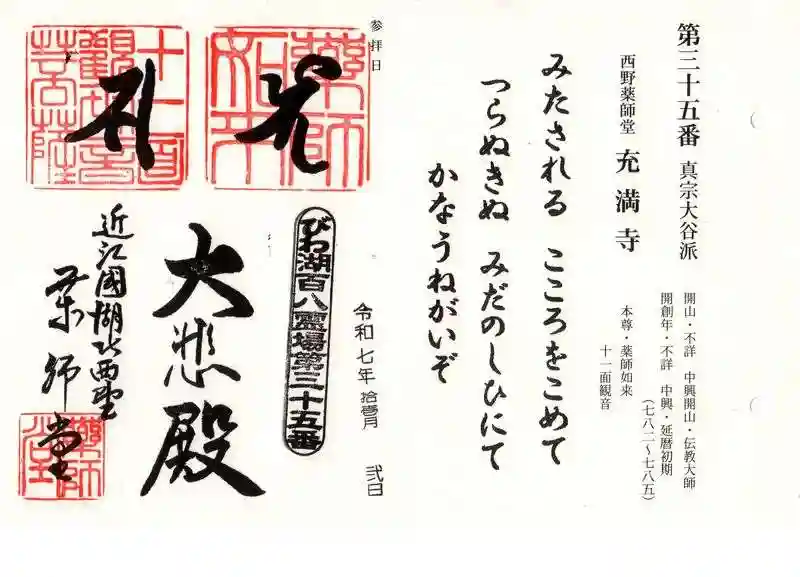 第三十五番 真宗大谷派
開山・不詳 中興開山・伝教大師
開創年・不詳 中興・延暦初期
（七八二〜七八五）
西野薬師堂 充満寺
本尊・薬師如来
十一面観音
みたされる こころをこめて
つらぬきぬ みだのしひにて
かなうねがいぞ
参拝日
令和七年 拾壱月 弐日
薬師如来
十一面観世音菩薩
びわ湖百八霊場第三十五番
大悲殿
近江國湖北西野
薬師堂